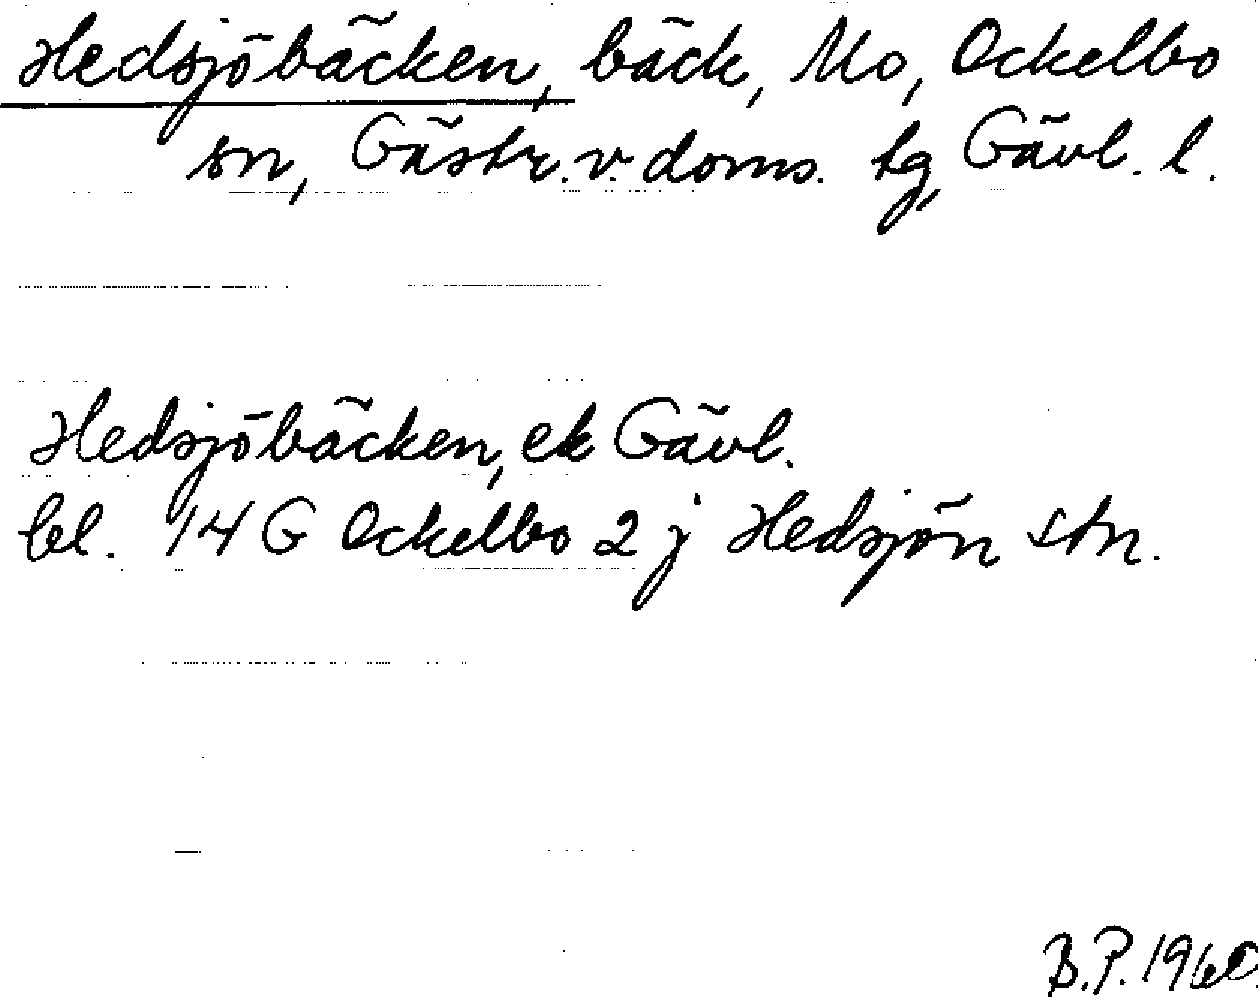 Hedsjöbäcken, bäck, Mo, Ockelbo
sn, Gästr. v. doms. tg, Gävl. l.
Hedsjöbäcken, ek Gävl.
bl. 14 G Ockelbo 2 j Hedsjön stn.
B.P. 1960